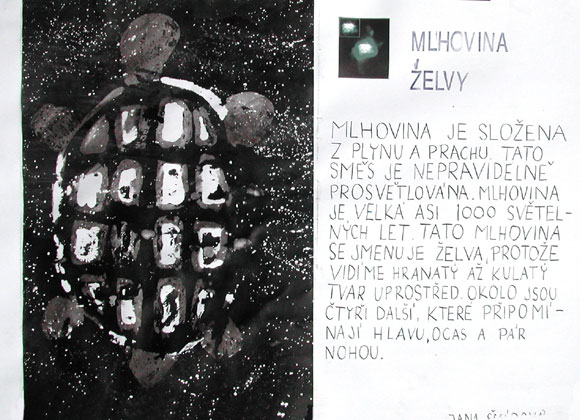 MLHOVINA
ŽELVY
MLHOVINA JE SLOŽENA
Z PLYNU A PRACHU. TATO
SMĚS JE NEPRAVIDELNĚ
PROSVĚTLOVÁNA. MLHOVINA
JE VELKÁ ASI 1000 SVĚTEL-
NÝCH LET. TATO MLHOVINA
SE JMENUJE ŽELVA, PROTOŽE
VIDÍME HRANATÝ AŽ KULATÝ
TVAR UPROSTŘED. OKOLO JSOU
ČTYŘI DALŠÍ, KTERÉ PŘIPOMÍ-
NAJÍ HLAVU, OCAS A PÁR
NOHOU.
JANA